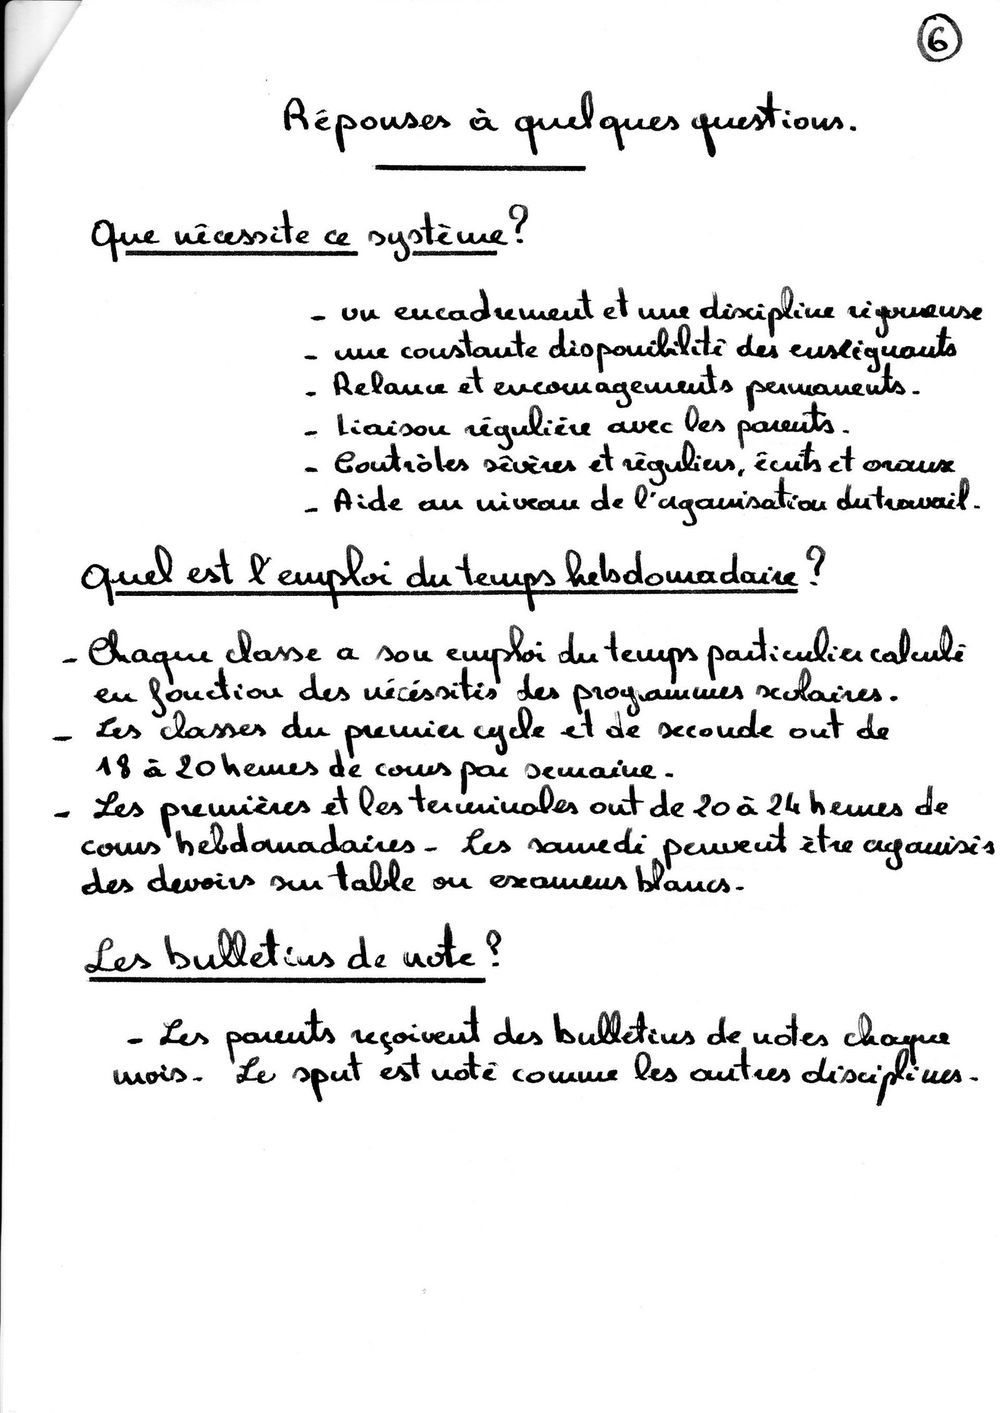 6
Réponses à quelques questions.
Que nécessite ce système?
- un encadrement et une discipline rigoureuse
- une constante disponibilité des enseignants
- Relance et encouragements permanents.
- Liaison régulière avec les parents.
- Contrôles sévères et réguliers, écrits et oraux
- Aide au niveau de l'organisation du travail.
Quel est l'emploi du temps hebdomadaire?
- Chaque classe a son emploi du temps particulier calculé
en fonction des nécéssités des programmes scolaires.
- Les classes du premier cycle et de seconde ont de
18 à 20 heures de cours par semaine.
- Les premières et les terminales ont de 20 à 24 heures de
cours hebdomadaires - Les samedi peuvent être organisés
des devoirs sur table ou examens blancs.
Les bulletins de note?
- Les parents reçoivent des bulletins de notes chaque
mois. Le sport est noté comme les autres disciplines.